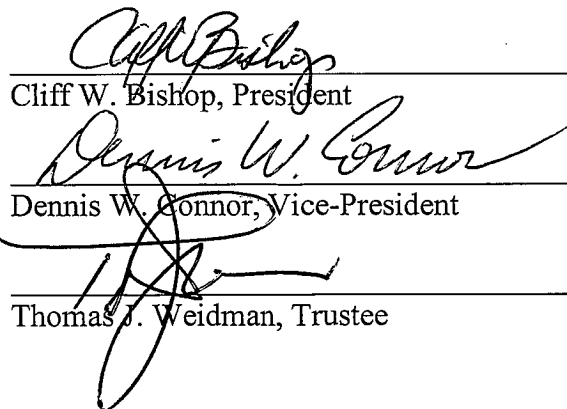 Cliff W. Bishop
Cliff W. Bishop, President
Dennis W. Connor
Dennis W. Connor, Vice-President
Thomas J. Weidman, Trustee